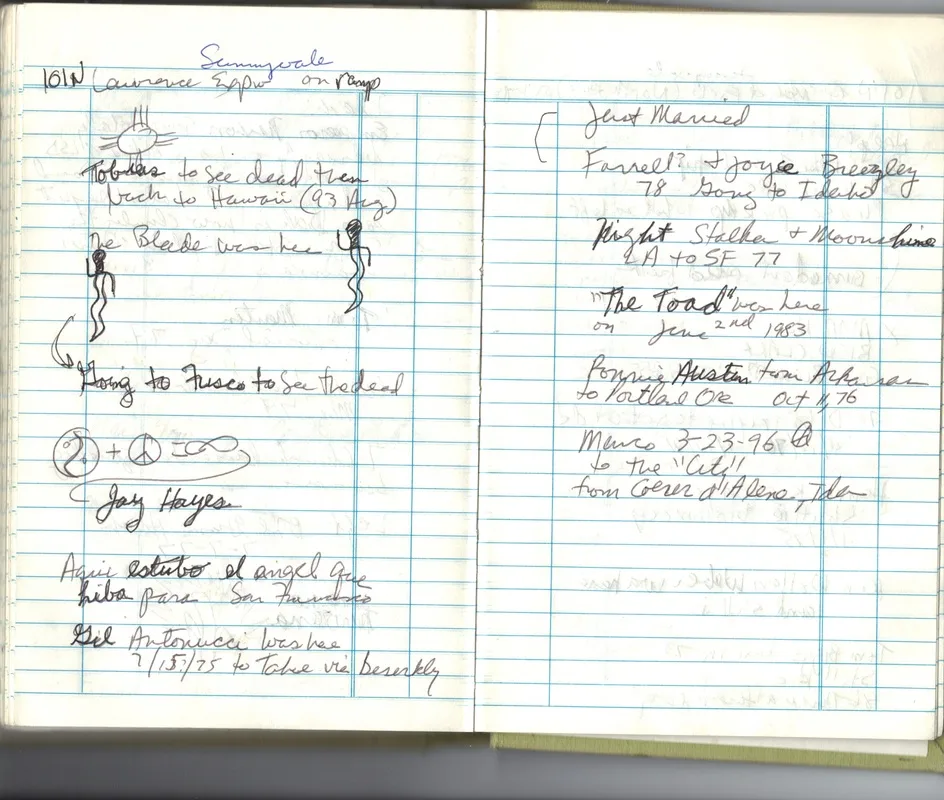 Sunnyvale
101N Lawrence Expw on ramp
to see dead then
back to Hawaii (93 Aug)
The Blade was here
Going to Frisco to see the dead
+ = 
Jay Hayes
Aqui estubo el angel que
hiba para San Francisco
Gil Antonucci was here
7/15?/75 to Tahoe via Beserkly
Just Married
Farrell? + Joyce Breezley
78 Going to Idaho
Night Stalker + Moonshine
LA to SF 77
"The Toad" was here
on June 2nd 1983
Austin from Arkansas
to Portland Ore Oct 11, 76
3-23-96
to the "City"
from Coerer d'Alene, Ida